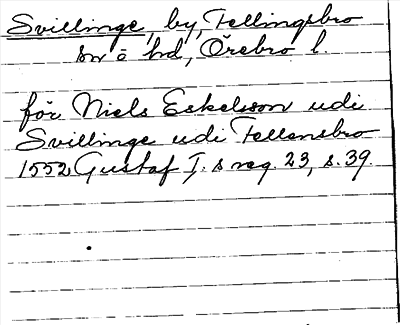 Svillinge, by, Fellingsbro
sn o hd, Örebro l.
för Niels Eskelsson udi
Svillinge udi Fellensbro
1552 Gustaf I. s reg. 23, s. 39.